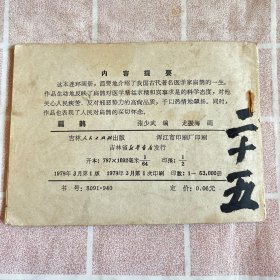 内容提要
这本连环画册，扼要地介绍了我国古代著名医学家扁鹊的一生。
作品生动地反映了扁鹊对医学精益求精和实事求是的科学态度，对他
关心人民疾苦、反对邪恶势力的高尚品质，予以热情地颂扬。同时，
作品也表现了人民对扁鹊的深切怀念。
扁鹊
张少武 编 尤骥海 画
吉林人民出版社出版 浑江市印刷厂印刷
吉林省新华书店发行
开本：787×1092毫米 1/64 印张：1/2
1979年3月第1版 1979年3月第1次印刷 印数：1—53,000册
书号：8091·940 定价：0.06元
二十五